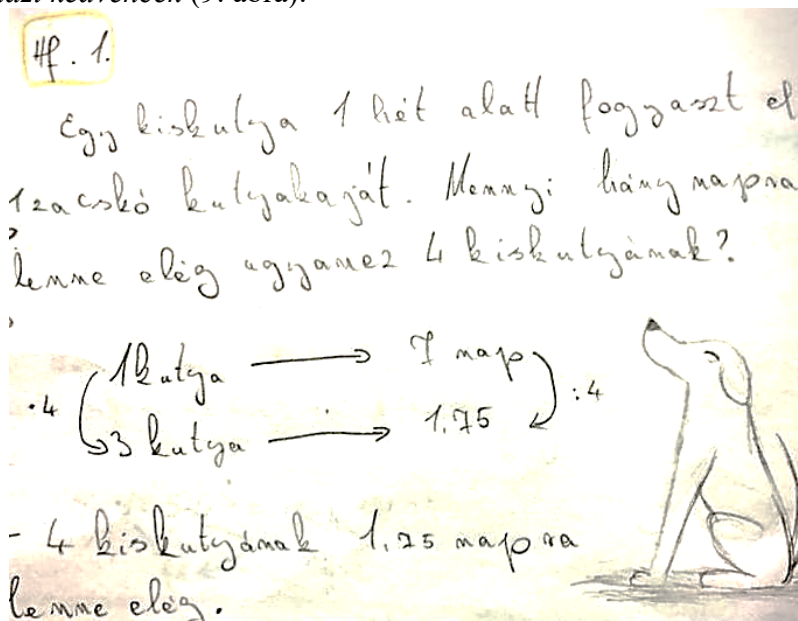 kedvencek (9. ábra).
Hf. 1.
Egy kiskutya 1 hét alatt fogyaszt el
1 zacskó kutyakaját. Mennyi hány napra
lenne elég ugyanez 4 kiskutyának?
1 kutya → 7 nap
·4 :4
3 kutya → 1,75
- 4 kiskutyának 1,75 napra
lenne elég.